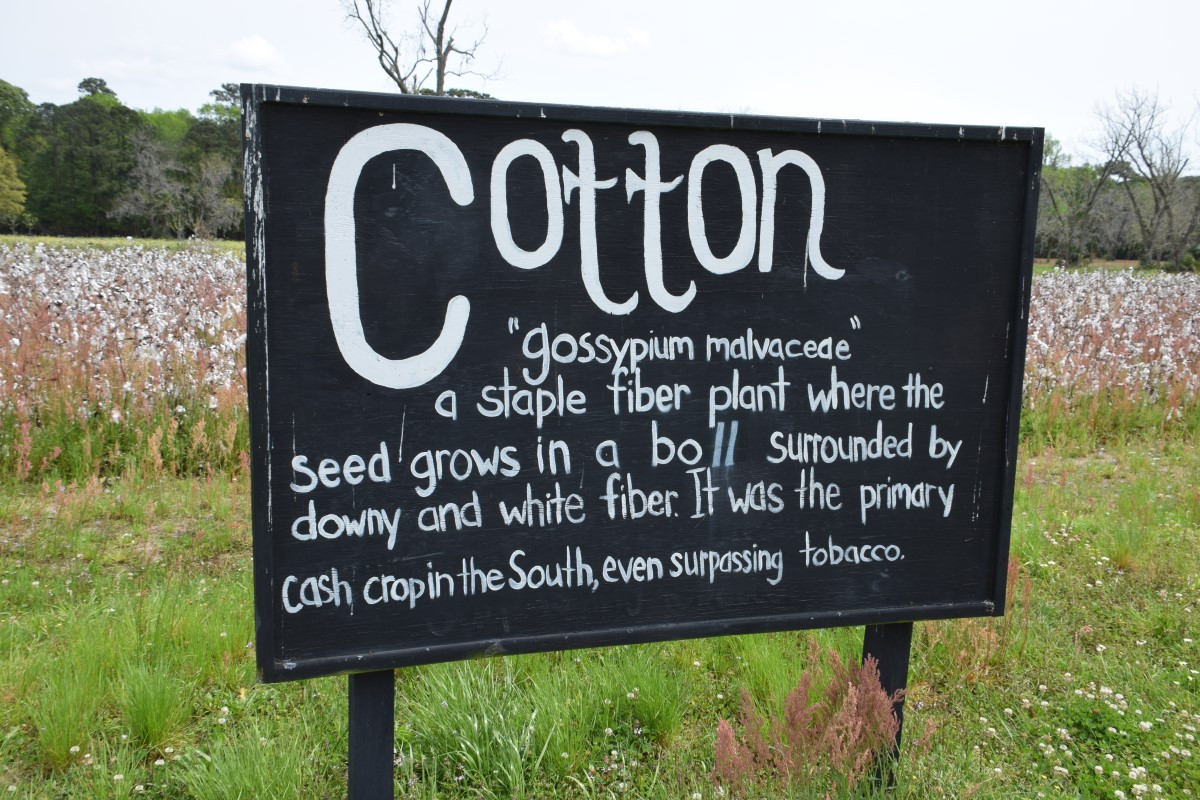 Cotton
"gossypium malvaceae"
a staple fiber plant where the
seed grows in a boll surrounded by
downy and white fiber. It was the primary
cash crop in the South, even surpassing tobacco.